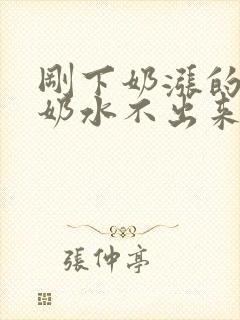 剛下奶漲的
奶水不出来
張仲亭